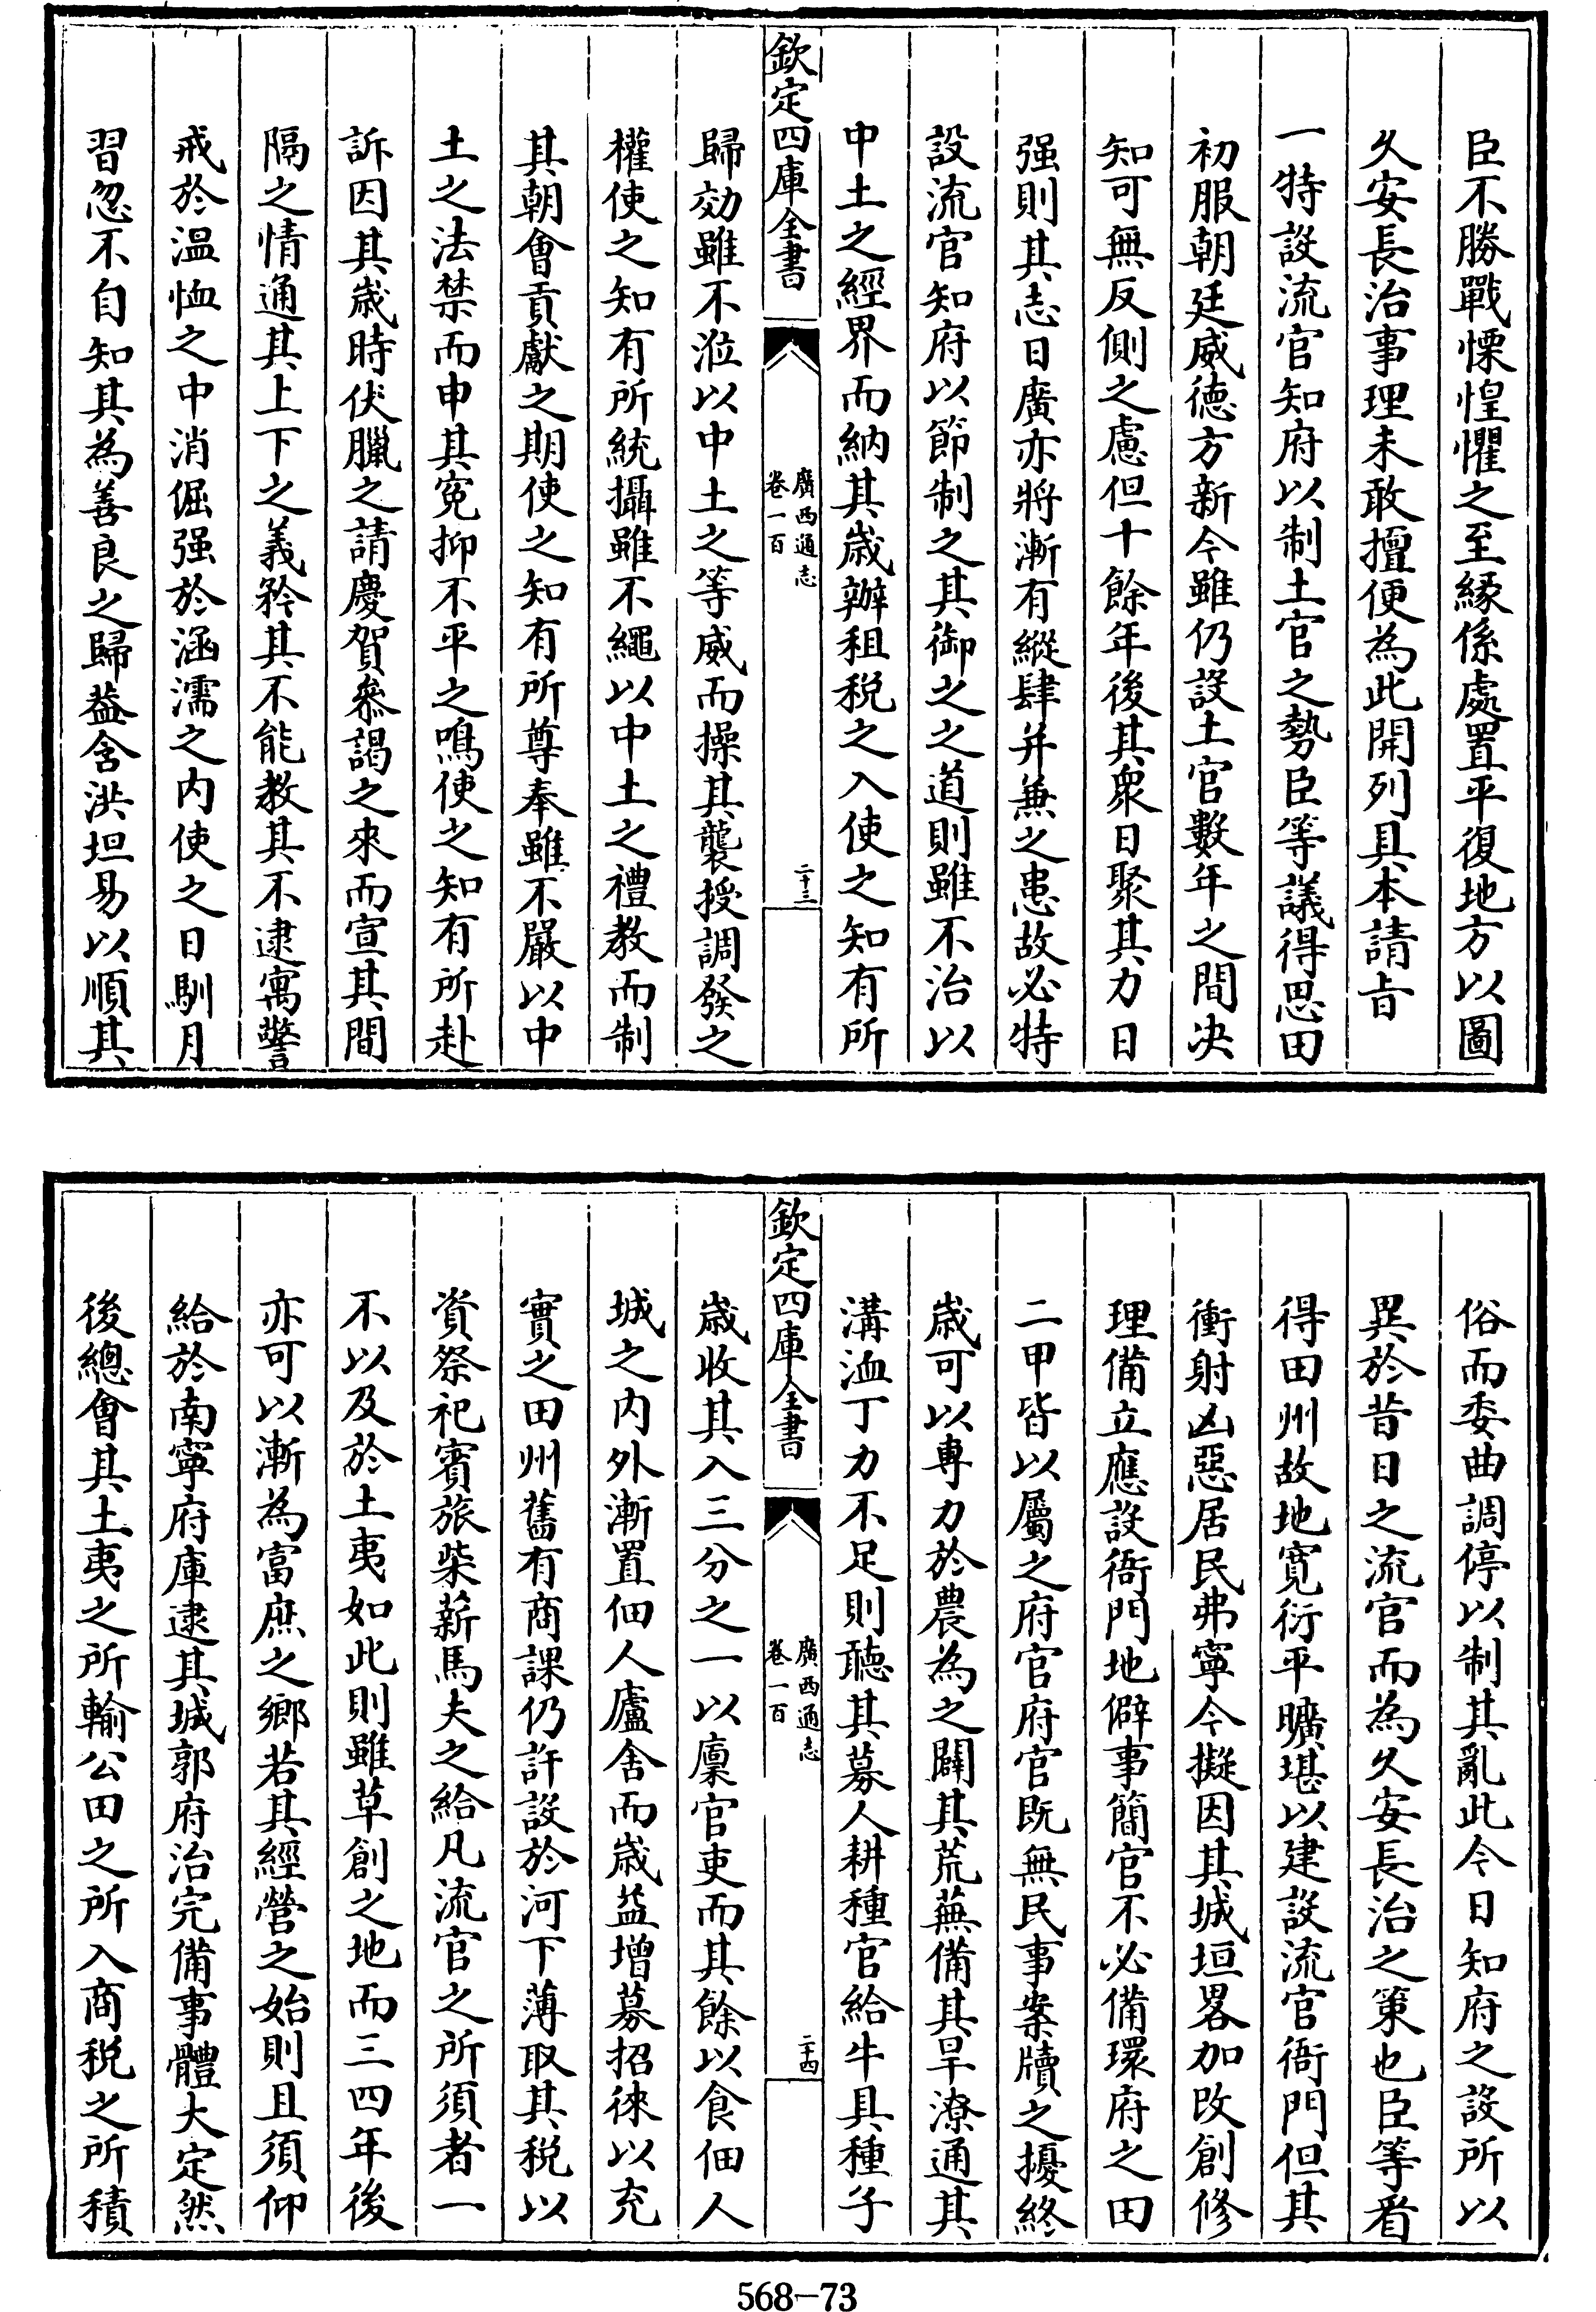 臣不勝戰慄惶懼之至縁係處置平復地方以圖
久安長治事理未敢擅便為此開列具本請旨
一特設流官知府以制土官之勢臣等議得思田
初服朝廷威徳方新今雖仍設土官數年之間决
知可無反側之慮但十餘年後其衆日聚其力日
强則其志日廣亦將漸有縱肆并兼之患故必特
設流官知府以節制之其御之之道則雖不治以
中土之經界而納其歲辦租税之入使之知有所
欽定四庫全書
廣西通志
卷一百
二十三
歸効雖不涖以中土之等威而操其襲授調發之
權使之知有所統攝雖不繩以中土之禮教而制
其朝會貢獻之期使之知有所尊奉雖不嚴以中
土之法禁而申其寃抑不平之鳴使之知有所赴
訴因其歲時伏臘之請慶賀叅謁之來而宣其間
隔之情通其上下之義矜其不能教其不逮寓警
戒於温恤之中消倔强於涵濡之内使之日馴月
習忽不自知其為善良之歸葢含洪坦易以順其
俗而委曲調停以制其亂此今日知府之設所以
異於昔日之流官而為久安長治之策也臣等看
得田州故地寛衍平曠堪以建設流官衙門但其
衝射凶惡居民弗寧今擬因其城垣畧加改創修
理備立應設衙門地僻事簡官不必備環府之田
二甲皆以屬之府官府官既無民事案牘之擾終
歲可以專力於農為之闢其荒蕪備其旱潦通其
溝洫丁力不足則聽其募人耕種官給牛具種子
欽定四庫全書
廣西通志
卷一百
二十四
歲收其入三分之一以廪官吏而其餘以食佃人
城之内外漸置佃人廬舍而歲益增募招徠以充
實之田州舊有商課仍許設於河下薄取其税以
資祭祀賓旅柴薪馬夫之給凡流官之所須者一
不以及於土夷如此則雖草創之地而三四年後
亦可以漸為富庶之鄉若其經營之始則且須仰
給於南寧府庫逮其城郭府治完備事體大定然
後總會其土夷之所輸公田之所入商税之所積
568-73